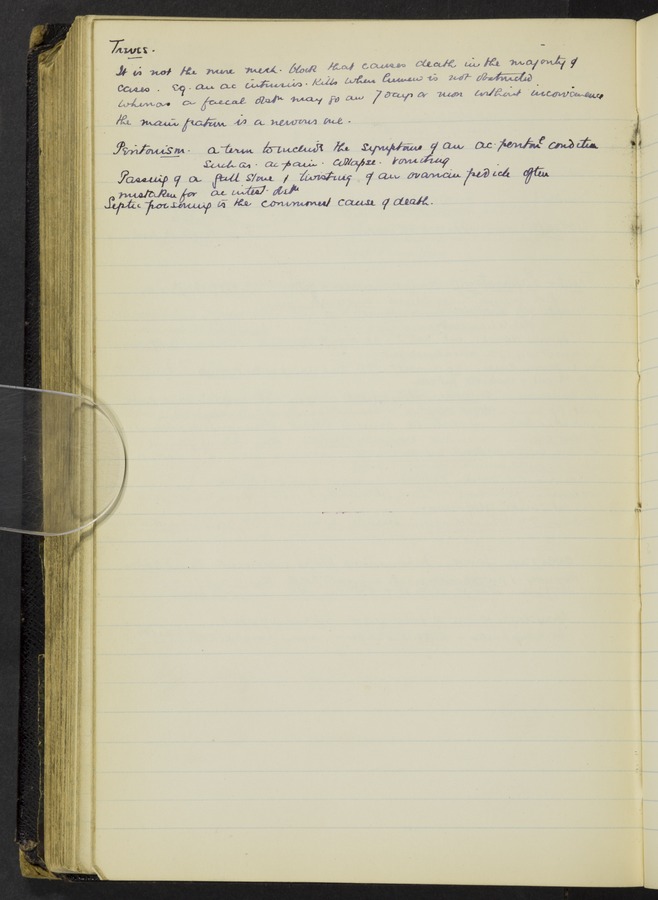 Treves.
It is not the mere mech. block that causes death in the majority of
cases. eg. an ac intussus. kills when lumen is not obstructed
whereas a faecal obstn may go on 7 days or more without inconvenience
the main factor is a nervous one.
Peritonism. a term to include the symptoms of an ac. peritonl condition
such as. ac pain. collapse. vomiting
Passing of a gall stone & twisting of an ovarian pedicle often
mistaken for ac intest. obstn
Septic poisoning is the commonest cause of death.